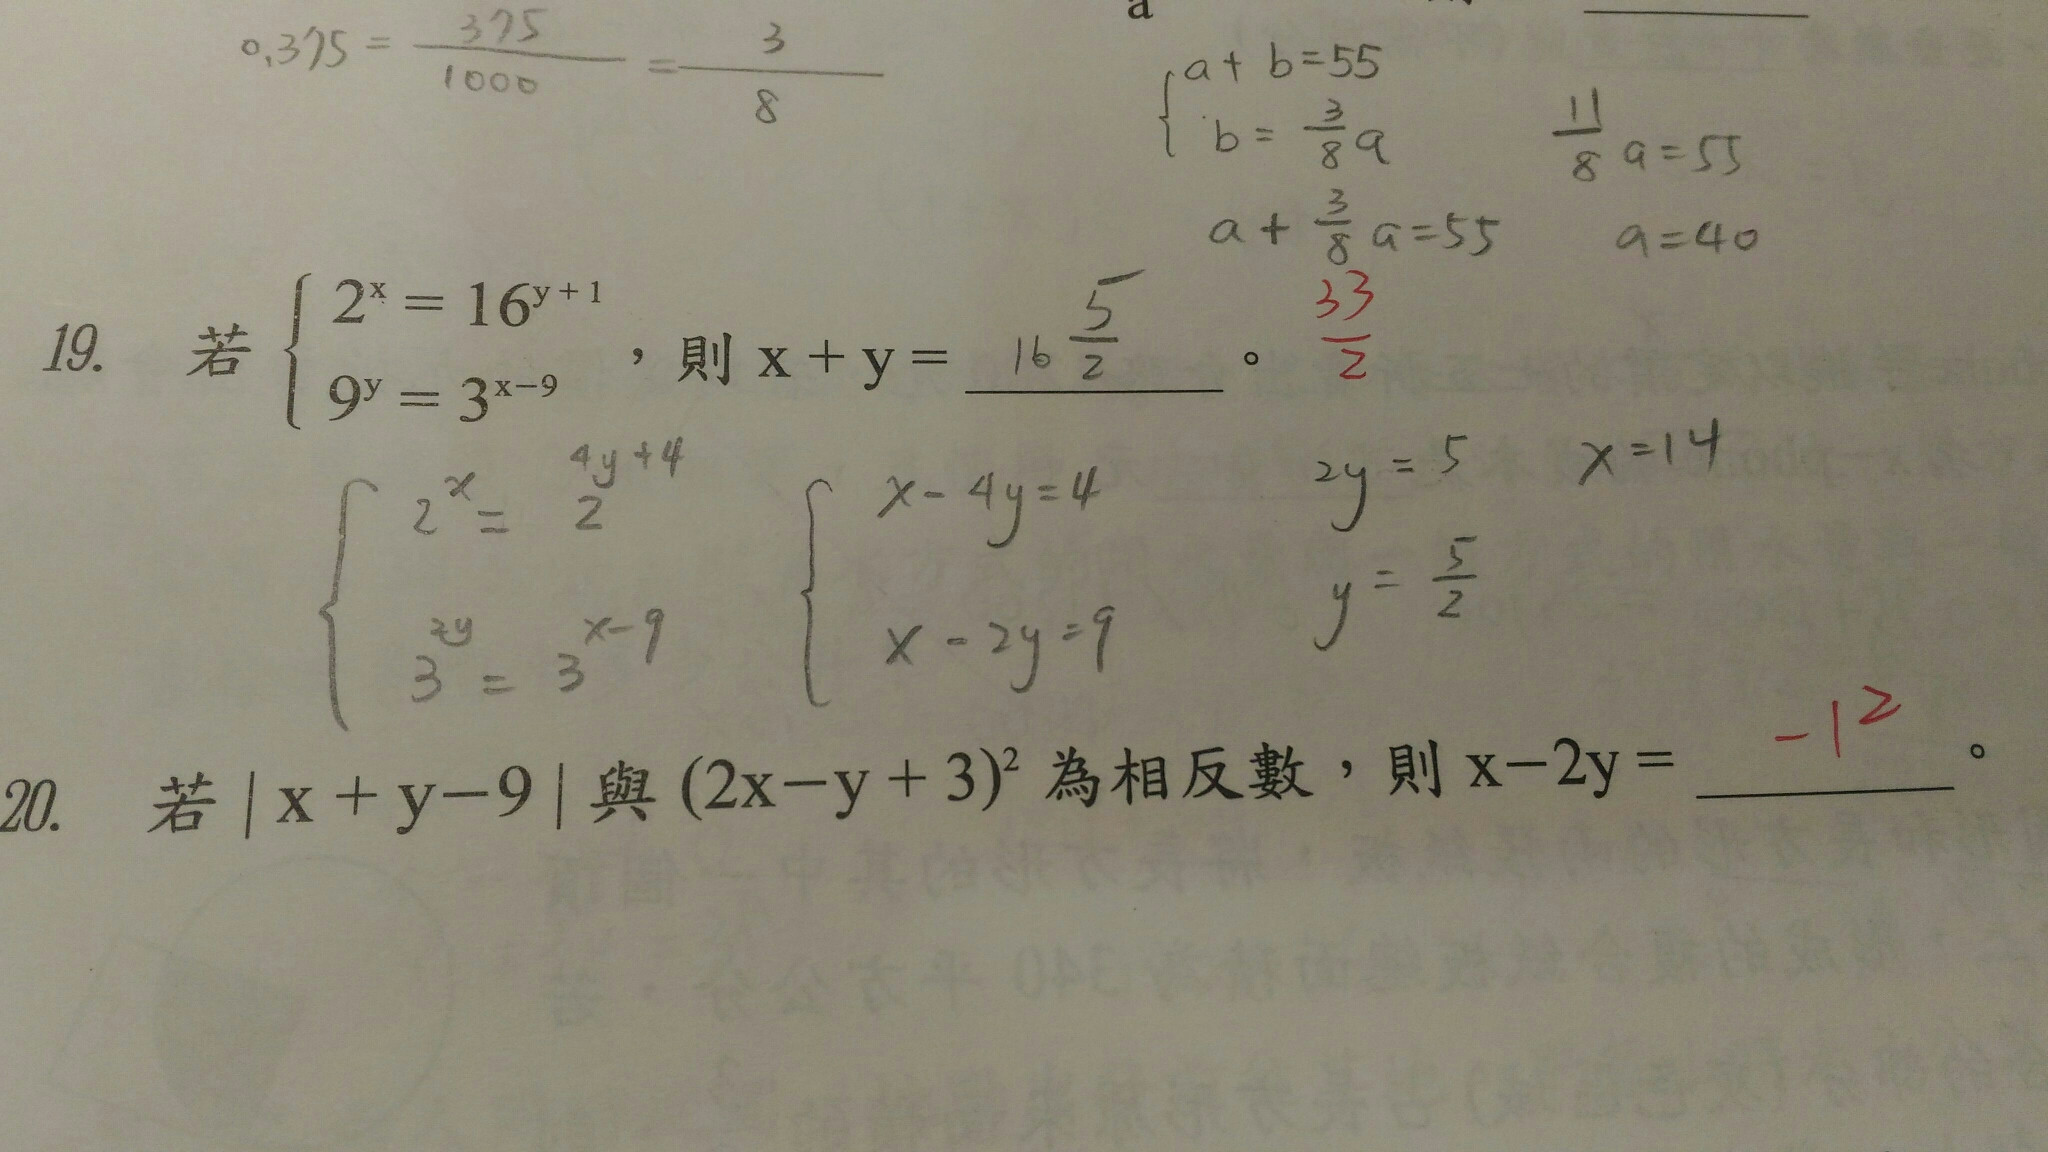 a
0.375 = 375/1000 = 3/8
a + b = 55
b = 3/8 a
11/8 a = 55
a + 3/8 a = 55
a = 40
19. 若 { 2^x = 16^(y+1)
9^y = 3^(x-9) ,則 x + y = 16 5/2 。 33/2
2^x = 2^(4y+4)
3^(2y) = 3^(x-9)
x - 4y = 4
x - 2y = 9
2y = 5
y = 5/2
x = 14
20. 若 | x + y - 9 | 與 (2x - y + 3)² 為相反數,則 x - 2y = -1² 。